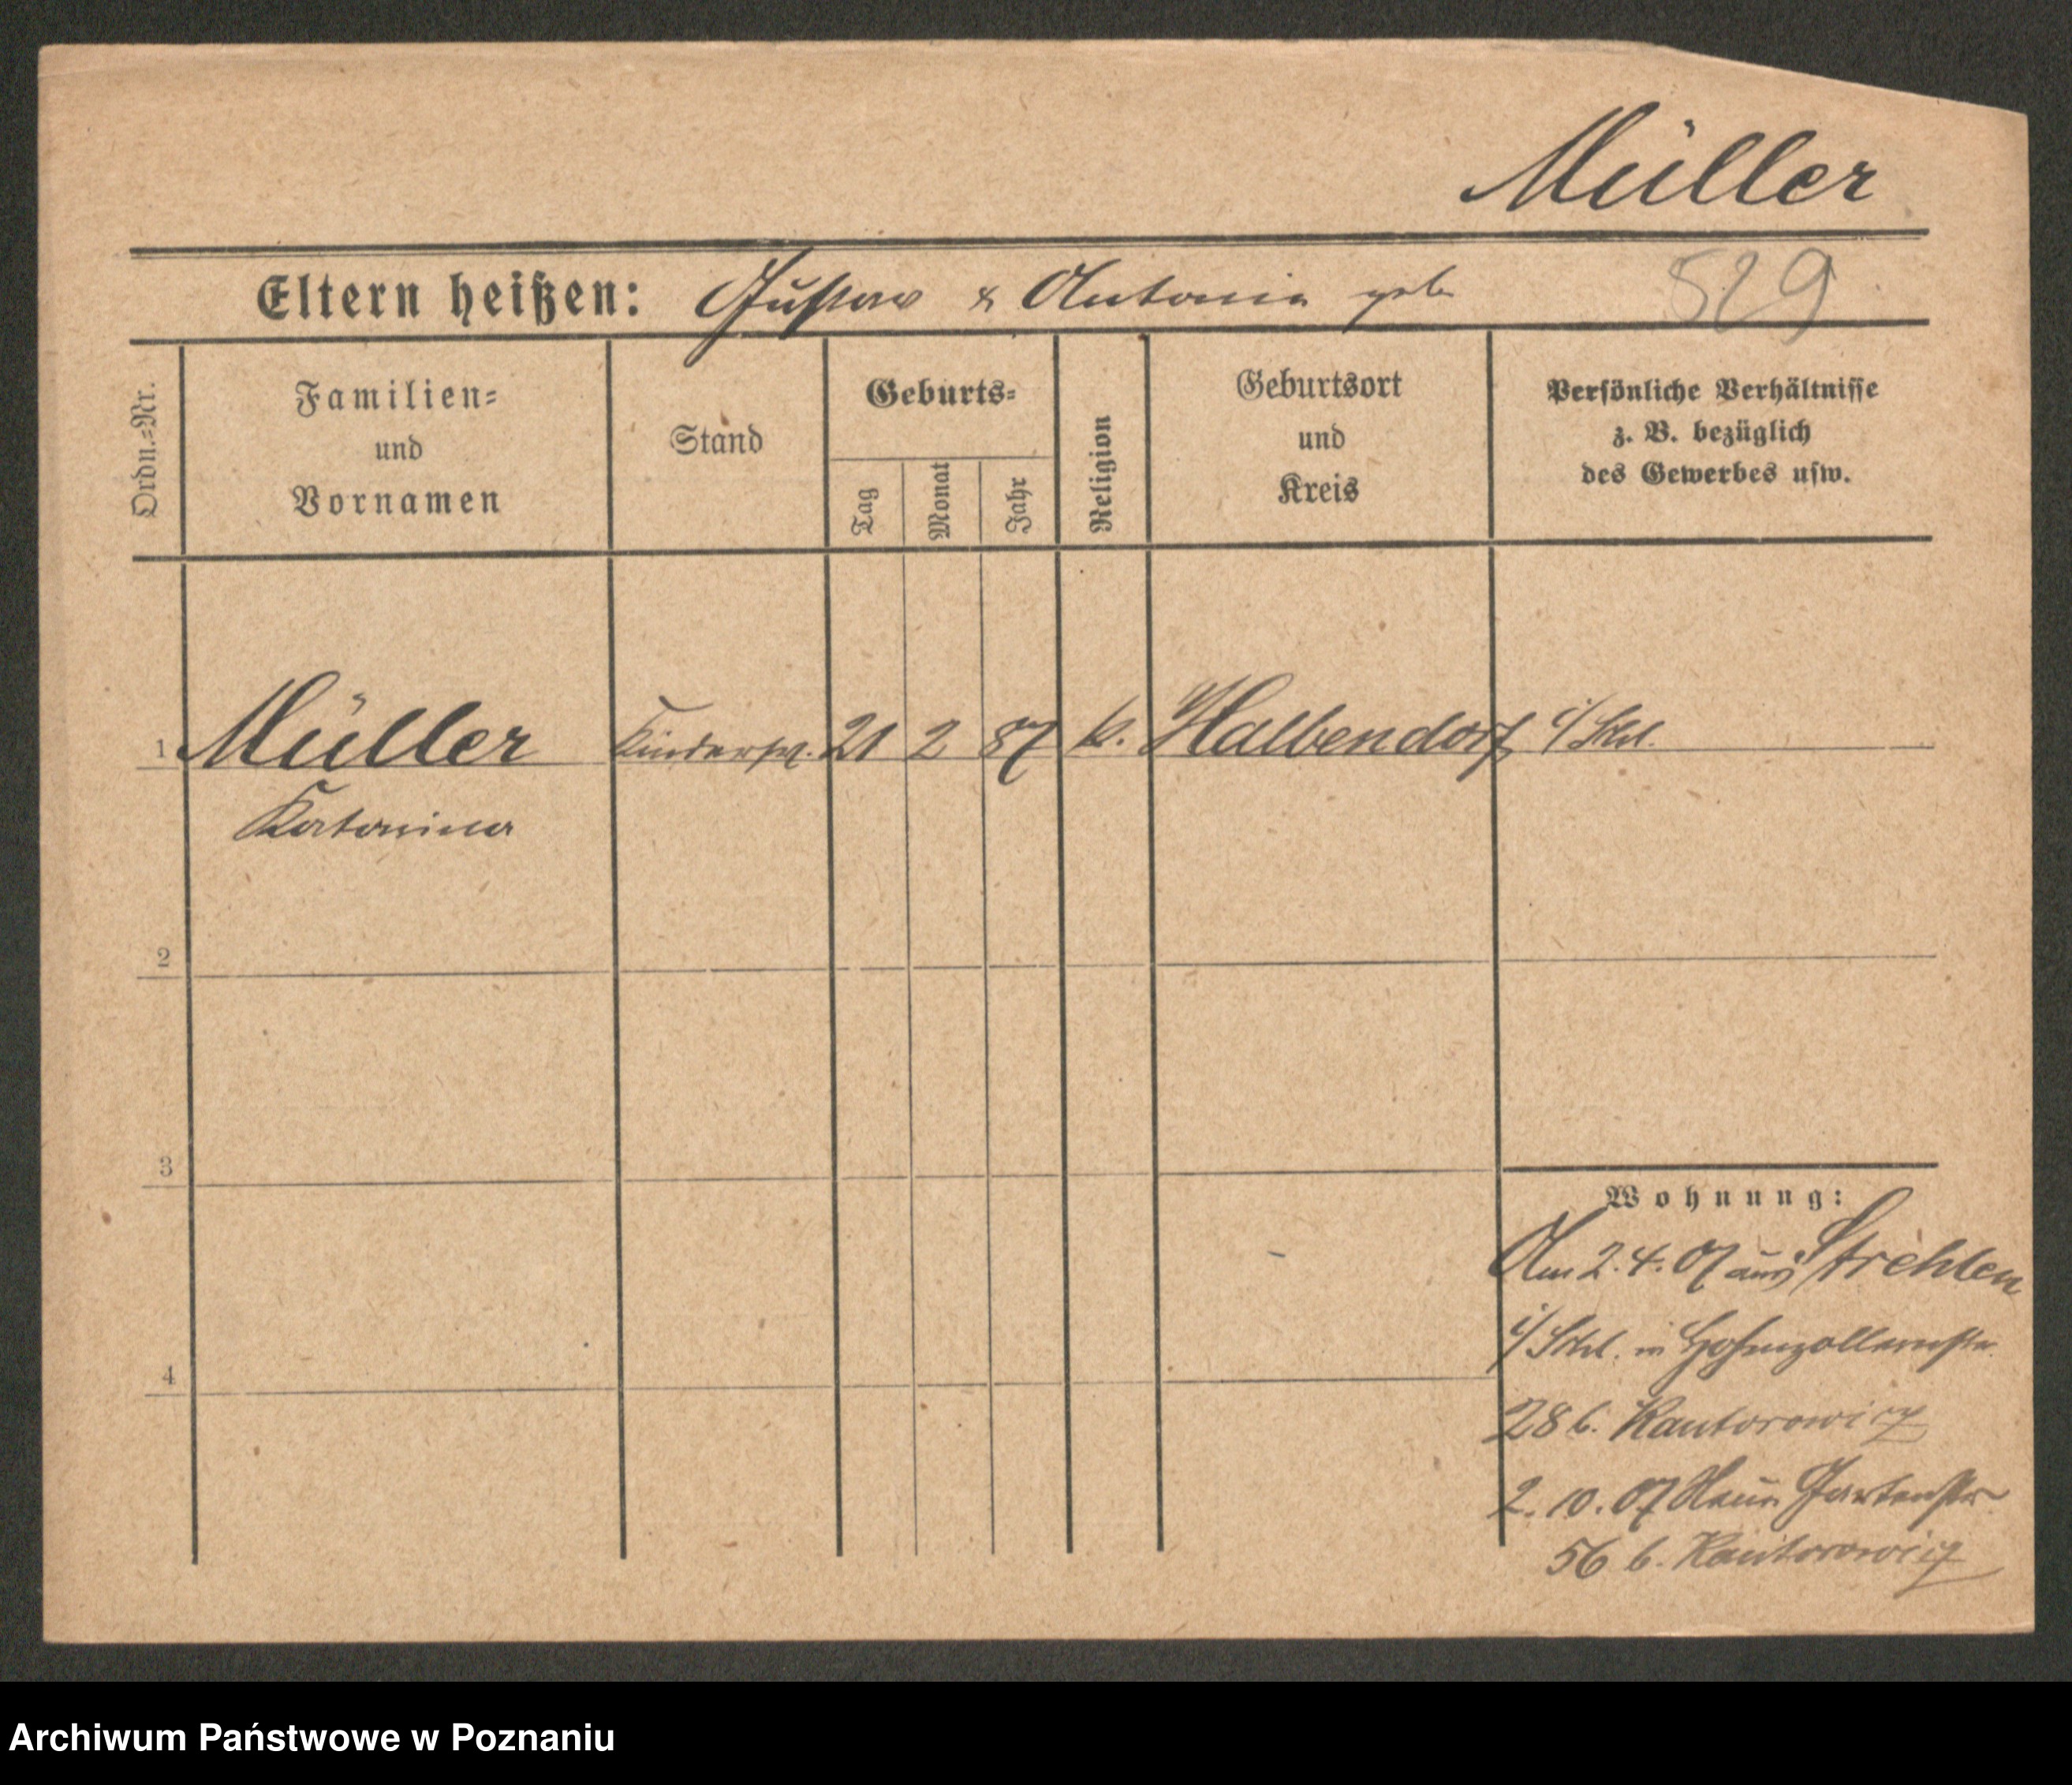 Müller
Eltern heißen: Gustav & Antonia geb.
529
Ordn.-Nr.
Familien-
und
Vornamen
Stand
Geburts-
Tag
Monat
Jahr
Religion
Geburtsort
und
Kreis
Persönliche Verhältnisse
z. B. bezüglich
des Gewerbes usw.
1 Müller Kinderfrl. 21 2 87 k. Halbendorf i/Schl.
2
3
4
Wohnung:
Am 2.4.07 aus Strehlen
i/Schl. in Hohenzollernstr.
28 b. Kantorowicz
2.10.07 Neue Gartenstr
56 b. Kantorowicz
Archiwum Państwowe w Poznaniu